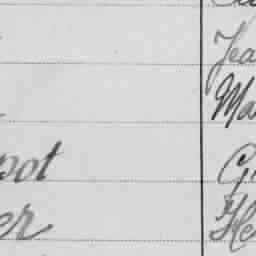 Jea
Ma
pot G
er He